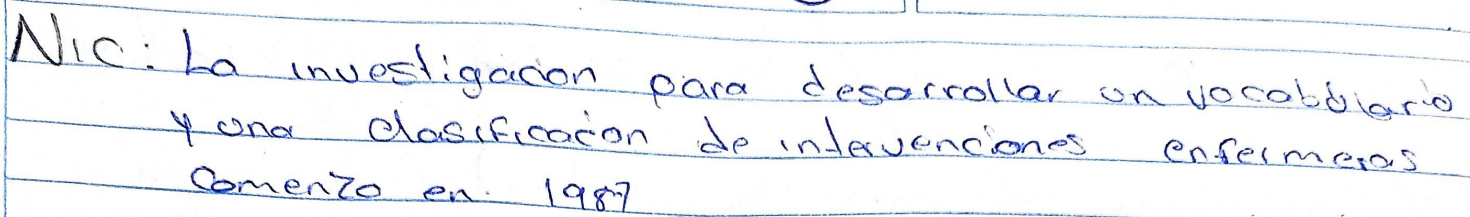 NIC: La investigacion para desarrollar un vocabulario
y una clasificacion de intervenciones enfermeras
Comenzo en. 1987